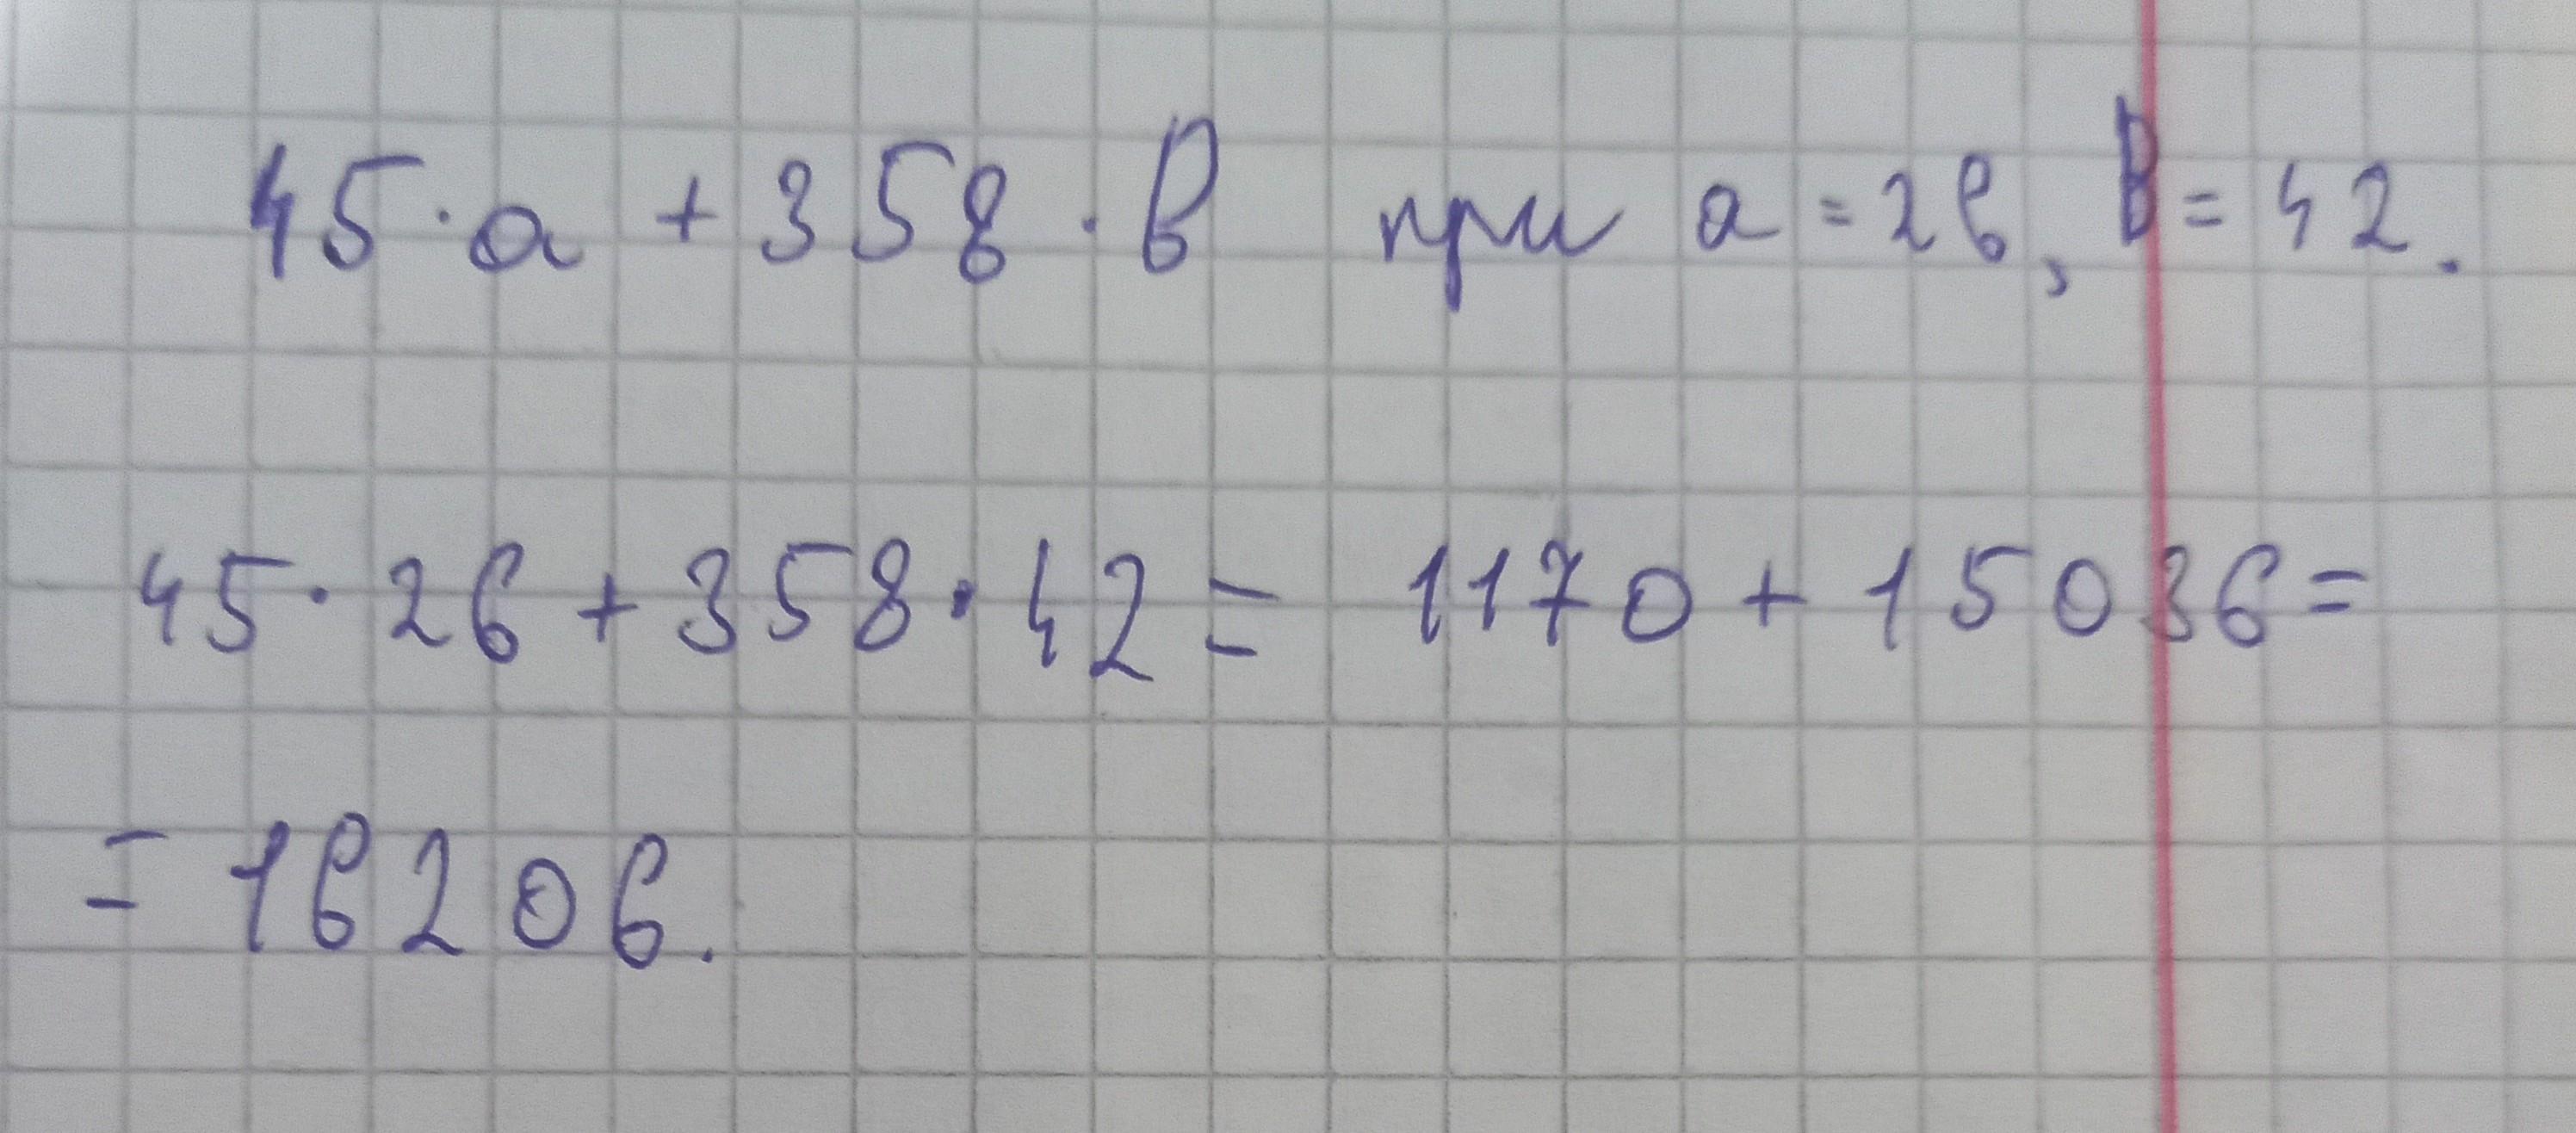 45·a + 358·в при a = 26, в = 42.
45·26 + 358·42 = 1170 + 15036 =
= 16206.